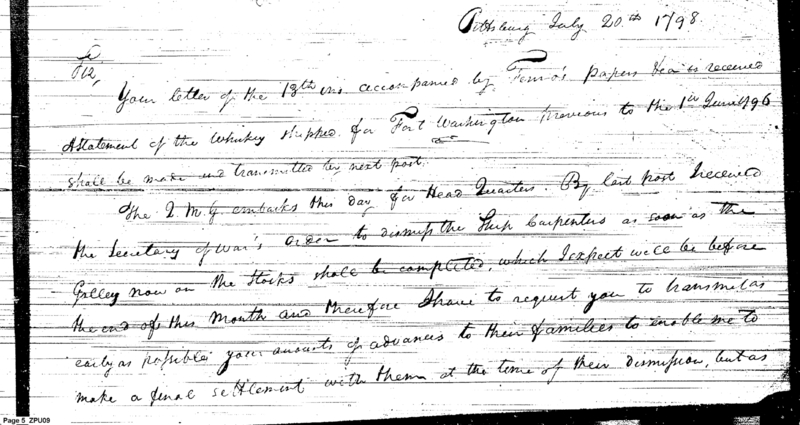 Pittsburg July 20th 1798.
Sir,
Your letter of the 13th ins accompanied by Fenno's papers &ca is received
A statement of the Whiskey shipped for Fort Washington previous to the 1st June 1796
shall be made and transmitted by next post.
The Q. M. G. embarks this day for Head Quarters. By last post I received
the Secretary of War's order to dismiss the Ship Carpenters as soon as the
Galley now on the Stocks shall be completed, which I expect will be before
the end of this Month and therefore I have to request you to transmit as
early as possible your amounts of advances to their families to enable me to
make a final settlement with them at the time of their dismission, but as
Page 5 ZPU09